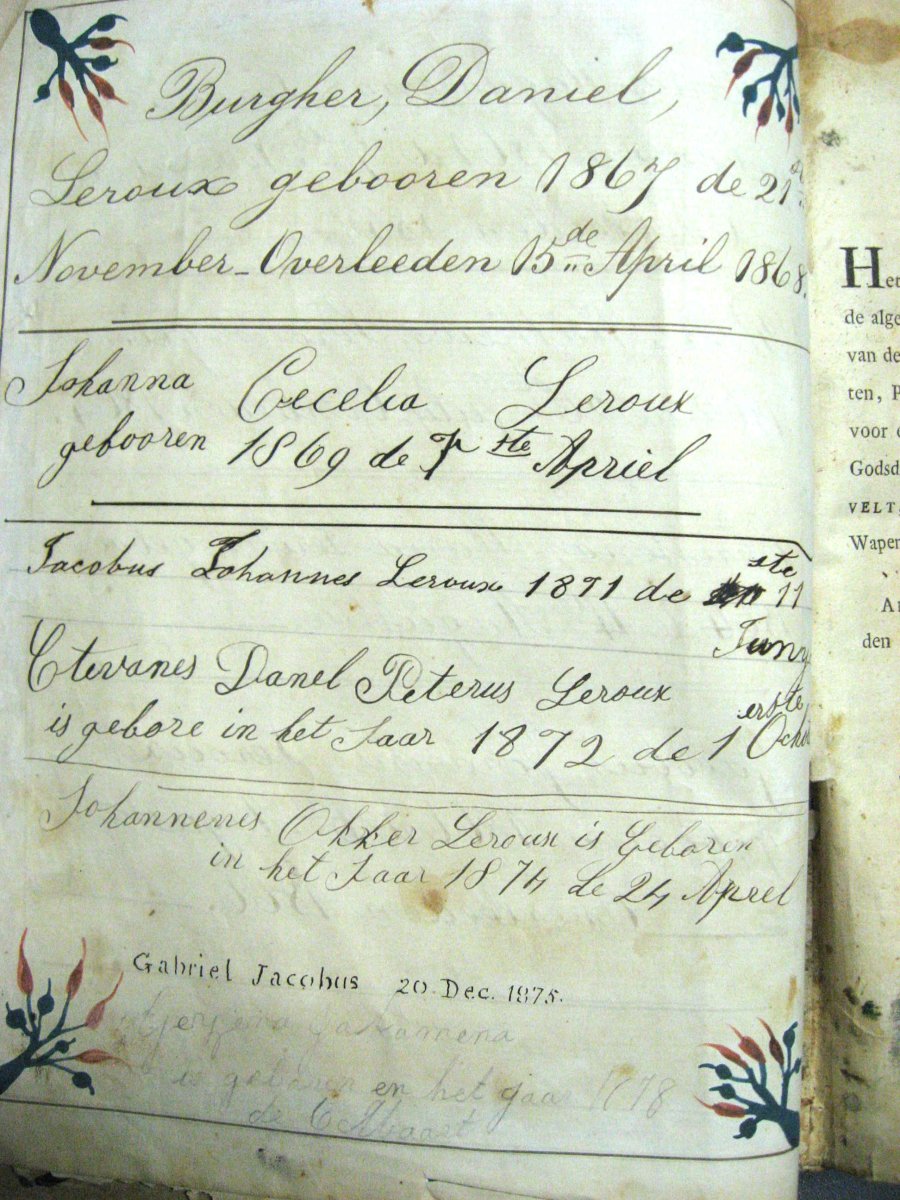 Burgher, Daniel,
Leroux gebooren 1867 de 21
November - Overleeden 15de April 1868.
Johanna Cecelia Leroux
gebooren 1869 de 7 ste Apriel
Jacobus Johannes Leroux 1871 de 11 ste
Juny
Stevanes Danel Peterus Leroux
is gebore in het Jaar 1872 de 1 erste
Johannenes Okker Leroux is Geboren
in het Jaar 1874 de 24 Aprel
Gabriel Jacobus 20. Dec. 1875.
is geboren en het jaar 1878
de 6 Maart
Her
de alge
van de
ten, P
voor
Godsd
VELT,
Wapen
den